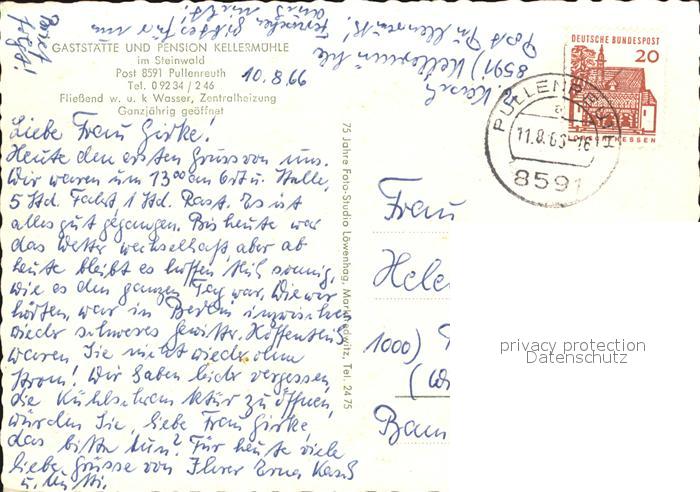 GASTSTÄTTE UND PENSION KELLERMÜHLE
im Steinwald
Post 8591 Pullenreuth
Tel. 0 92 34 / 2 46
Fließend w. u. k Wasser, Zentralheizung
Ganzjährig geöffnet
10.8.66
Liebe Frau Girke!
Heute den ersten Gruss von uns.
Wir waren um 13⁰⁰ an Ort u. Stelle,
5 Std. Fahrt 1 Std. Rast. Es ist
alles gut gegangen. Bis heute war
das Wetter wechselhaft, aber ab
heute bleibt es hoffentlich sonnig,
wie es den ganzen Tag war. Wie wir
hörten, war in Berlin inzwischen
wieder schweres Gewitter. Hoffentlich
waren Sie nicht wieder ohne
Strom! Wir haben leider vergessen,
die Kühlschranktür zu öffnen,
würden Sie, liebe Frau Girke,
das bitte tun? Für heute viele
liebe Grüsse von Ihrer Erna
u.
8591) Kellermühle
Post Pullenreuth!
75 Jahre Foto-Studio Löwenhag, Marktredwitz, Tel. 24 75
DEUTSCHE BUNDESPOST
20
LORSCH/HESSEN
PULLENREUTH
a
11.8.66-16
8591
Frau
Hele
1000)
privacy protection
Datenschutz